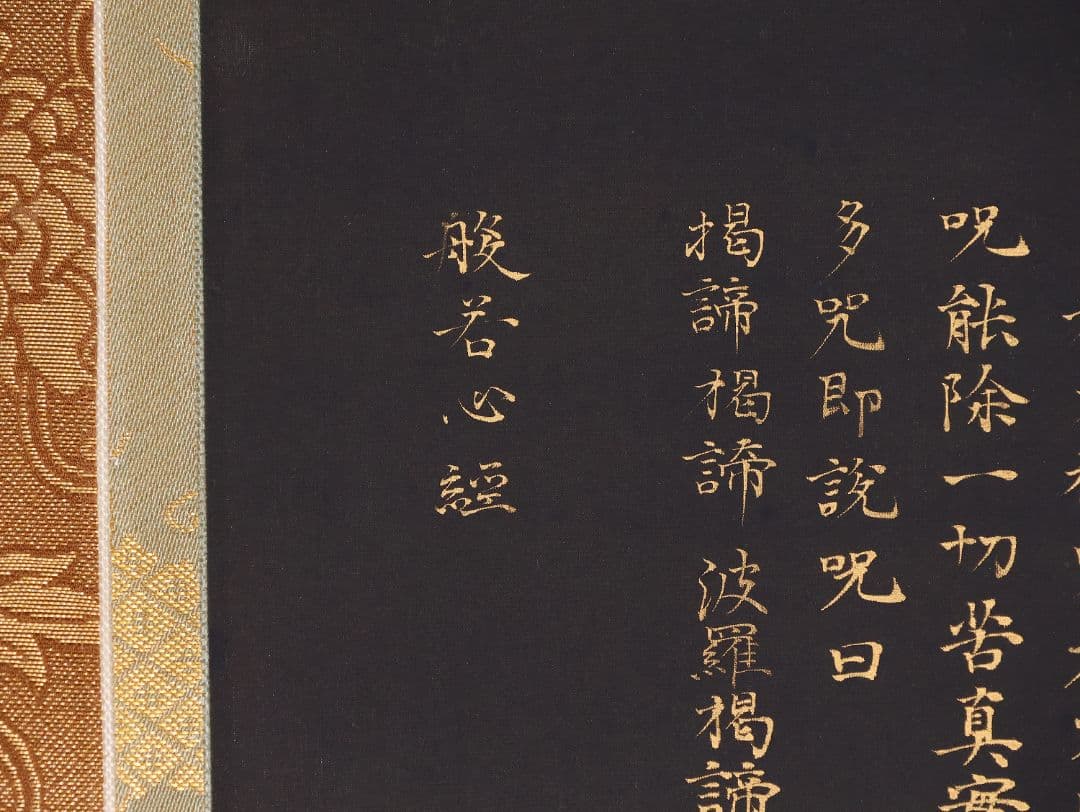 呪能除一切苦真實
多咒即說呪曰
揭諦揭諦波羅揭諦
般若心經